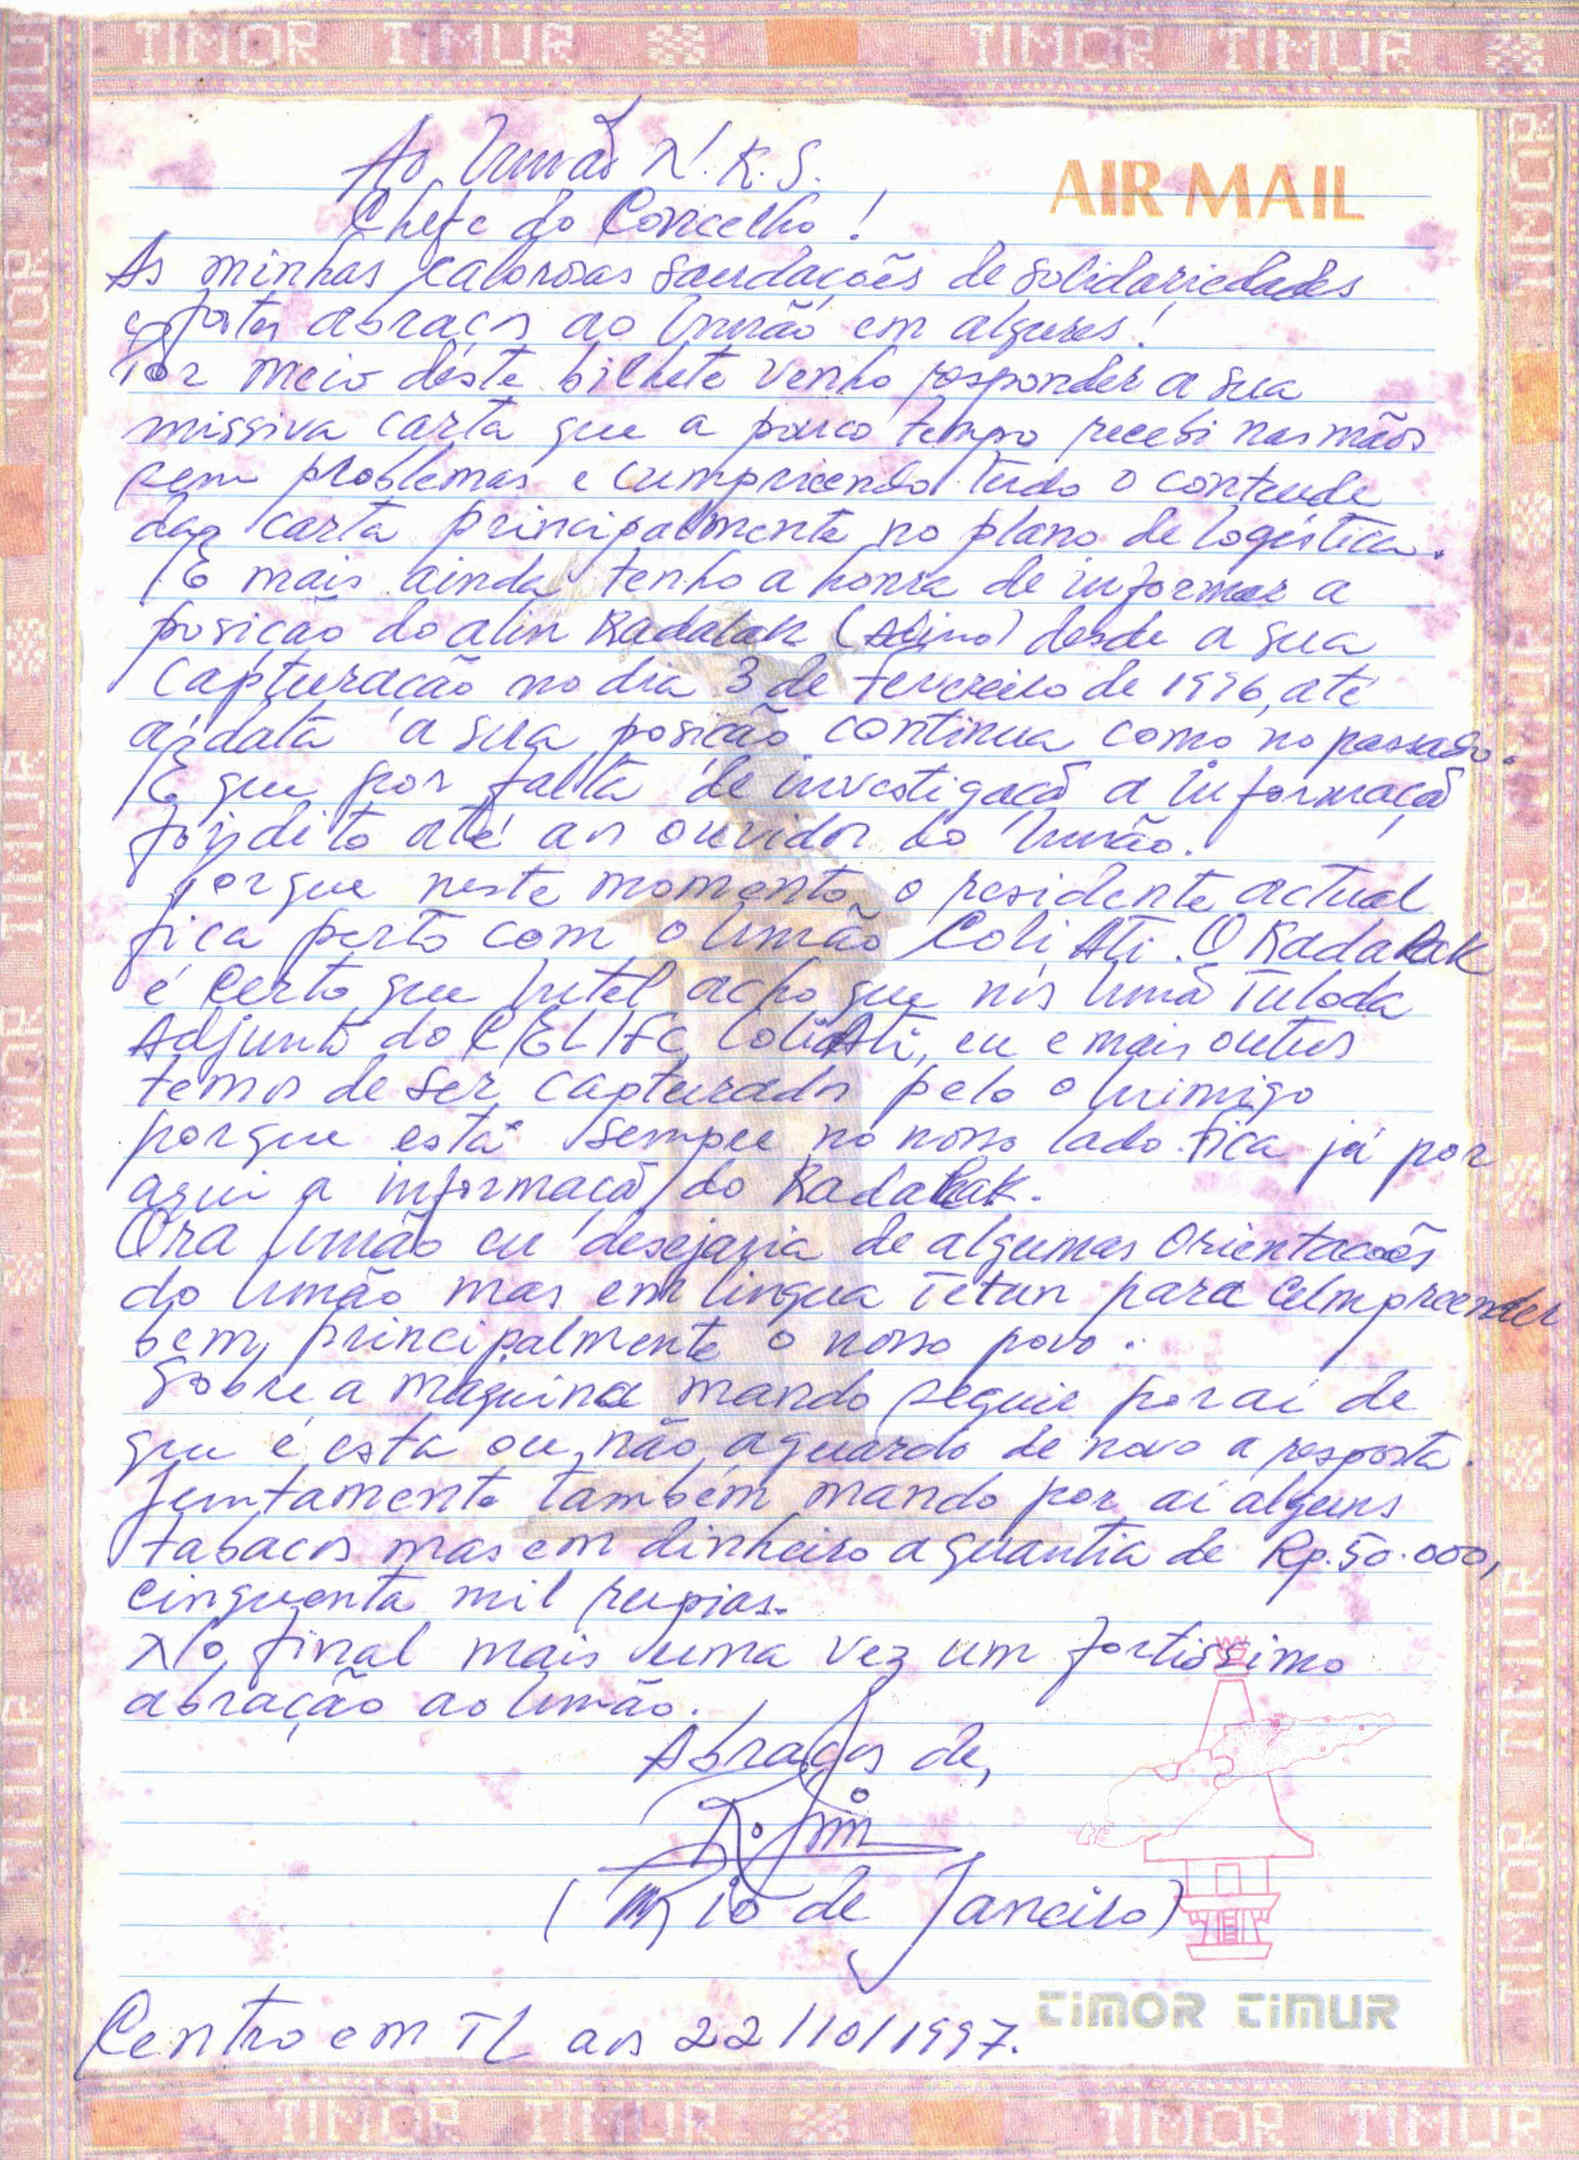 TIMOR TIMUR TIMOR TIMUR
AIR MAIL
Ao Irmão N.K.S.
Chefe do Concelho!
As minhas calorosas saudações de solidariedades
e fortes abraços ao Irmão em algures!
Por meio déste bilhete venho responder a sua
missiva carta que a pouco tempo recebi nas mãos
sem problemas e cumpricendo tudo o contude
das carta principalmente no plano de logística.
E mais ainda tenho a honra de informar a
posição do alin Radalak (Alino) desde a sua
capturação no dia 3 de Fevereiro de 1996, até
a data a sua posição continua como no passado.
E que por falta de investigaçã a informaçã
foi dito até aos ouvidos do Irmão.
Porque neste momento o residente actual
fica perto com o Irmão Coli Ati. O Radalak
é certo que Intel acho que nós Irmã Tuloda
Adjunto do CELIFC Coli Ati, eu e mais outros
temos de ser capturados pelo o Inimigo
porque está sempre no nosso lado. Fica já por
aqui a informaçã do Radalak.
Ora Irmão eu desejaria de algumas orientações
do Irmão mas em lingua Tetun para compreender
bem, principalmente o nosso povo.
Sobre a máquina mando seguir por aí de
que é esta ou não aguardo de novo a resposta.
Juntamente também mando por aí alguns
tabacos mas em dinheiro a quantia de Rp. 50.000,
cinquenta mil rupias.
No final mais uma vez um fortissimo
abração ao Irmão.
Abraços de,
(Rio de Janeiro)
TIMOR TIMUR
Centro em TL aos 22/10/1997.
TIMOR TIMUR TIMOR TIMUR